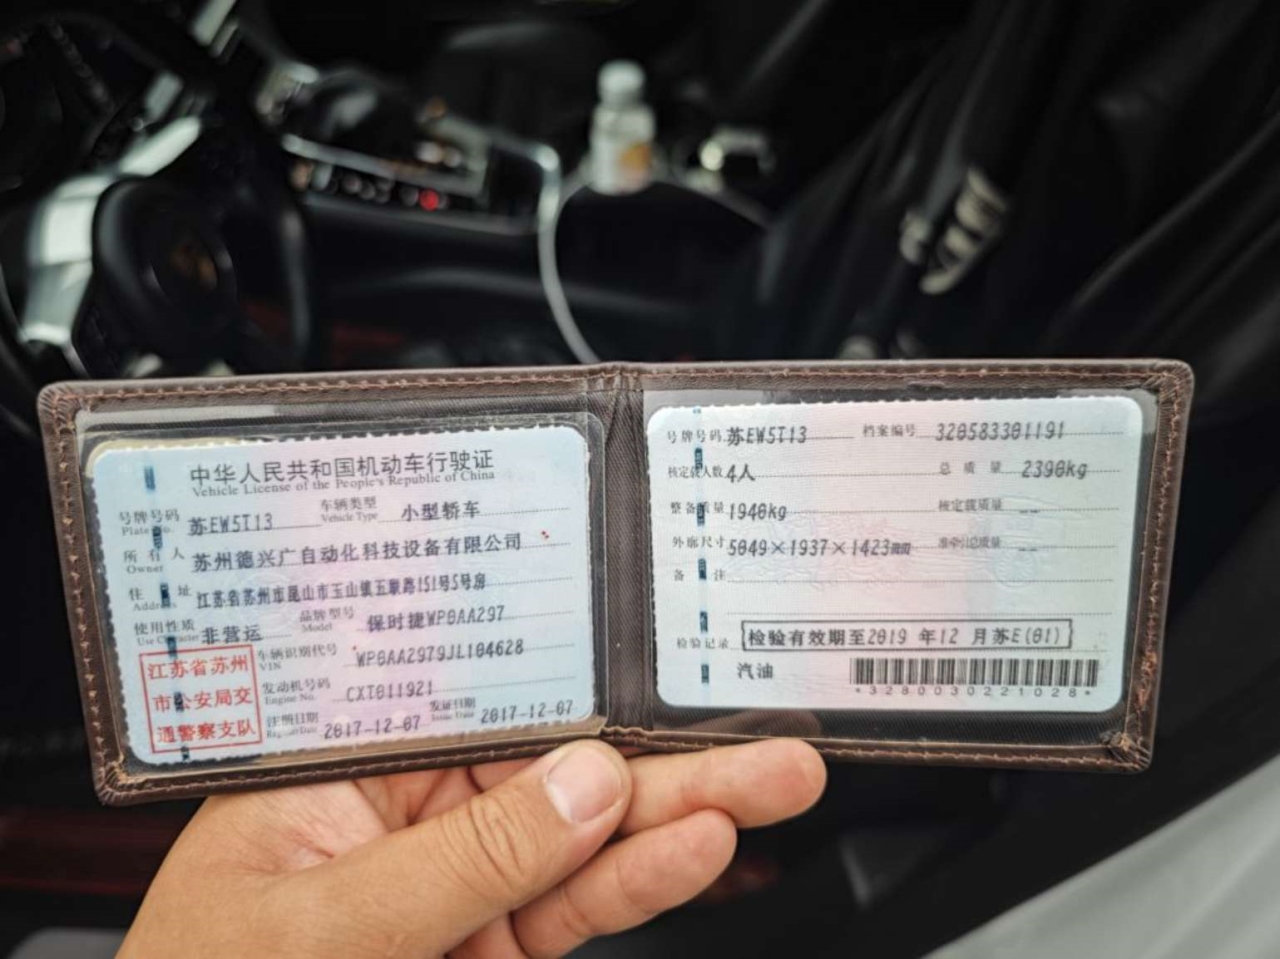 中华人民共和国机动车行驶证
Vehicle License of the People's Republic of China
号牌号码 苏EW5T13 车辆类型 小型轿车
Plate No. Vehicle Type
所有人 苏州德兴广自动化科技设备有限公司
Owner
住址 江苏省苏州市昆山市玉山镇五联路151号5号房
Address
使用性质 非营运 品牌型号 保时捷WP0AA297
Use Character Model
江苏省苏州
市公安局交
通警察支队
车辆识别代号 WP0AA2979JL104628
VIN
发动机号码 CXT011921
Engine No.
注册日期 2017-12-07 发证日期 2017-12-07
Register Date Issue Date
号牌号码 苏EW5T13 档案编号 320583301191
核定载人数 4人 总质量 2390kg
整备质量 1940kg 核定载质量 --
外廓尺寸 5049×1937×1423mm 准牵引总质量 --
备注
检验记录 检验有效期至2019 年12 月苏E(01)
汽油
*3280030221028*